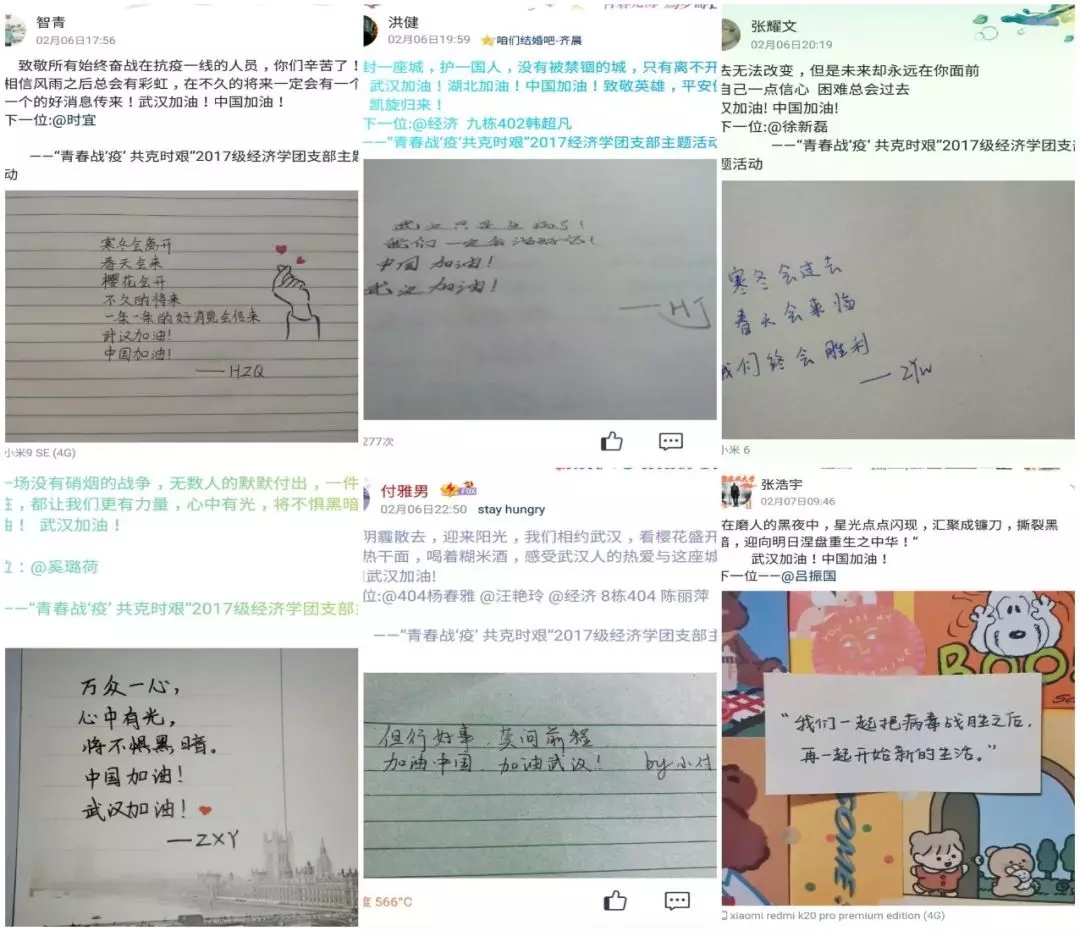 智青
02月06日17:56
致敬所有始终奋战在抗疫一线的人员，你们辛苦了！
相信风雨之后总会有彩虹，在不久的将来一定会有一个
一个的好消息传来！武汉加油！中国加油！
下一位:@时宜
——“青春战‘疫’ 共克时艰”2017级经济学团支部主题
动
寒冬会离开
春天会来
樱花会开
不久的将来
一条一条的好消息会传来
武汉加油!
中国加油!
——HZQ
小米9 SE (4G)
洪健
02月06日19:59 咱们结婚吧-齐晨
封一座城，护一国人，没有被禁锢的城，只有离不开
武汉加油！湖北加油！中国加油！致敬英雄，平安
凯旋归来！
下一位:@经济 九栋402韩超凡
——“青春战‘疫’ 共克时艰”2017级经济学团支部主题活动
武汉只是生病了!
我们一定会治好它!
中国 加油!
武汉 加油!
—HJ
277次
张耀文
02月06日20:19
去无法改变，但是未来却永远在你面前
自己一点信心 困难总会过去
汉加油! 中国加油!
下一位:@徐新磊
——“青春战‘疫’ 共克时艰”2017级经济学团支
题活动
寒冬会过去
春天会来临
我们终会胜利
— ZYW
小米 6
一场没有硝烟的战争，无数人的默默付出，一件
，都让我们更有力量，心中有光，将不惧黑暗
油！ 武汉加油！
位：@奚璐荷
——“青春战‘疫’ 共克时艰”2017级经济学团支部
万众一心，
心中有光，
将不惧黑暗。
中国加油!
武汉加油!
—ZXY
付雅男 FOX
02月06日22:50 stay hungry
阴霾散去，迎来阳光，我们相约武汉，看樱花盛开
热干面，喝着糊米酒，感受武汉人的热爱与这座城
武汉加油!
位:@404杨春雅 @汪艳玲 @经济 8栋404 陈丽萍
——“青春战‘疫’ 共克时艰”2017级经济学团支部主
但行好事，莫问前程
加油中国，加油武汉! by小付
度 566°C
张浩宇
02月07日09:46
在磨人的黑夜中，星光点点闪现，汇聚成镰刀，撕裂黑
暗，迎向明日涅盘重生之中华！”
武汉加油！中国加油！
下一位——@吕振国
YOU ARE MY
SUNSHINE
BOO!
“我们一起把病毒战胜之后,
再一起开始新的生活。”
SOME
xiaomi redmi k20 pro premium edition (4G)